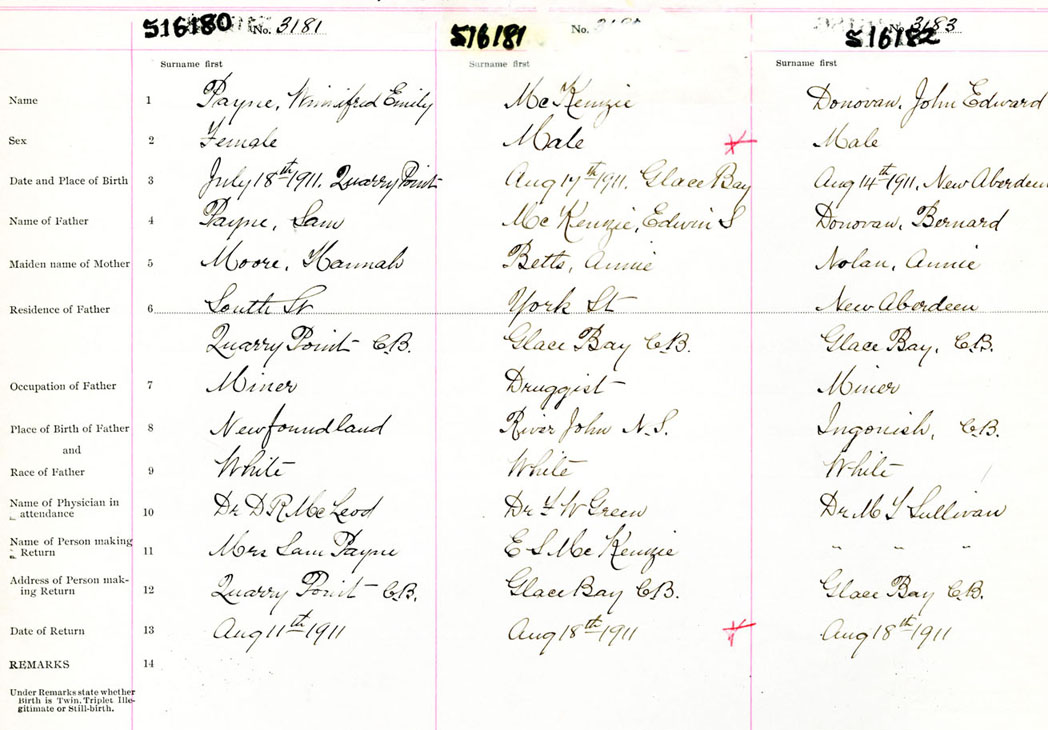 516180 No. 3181 516181 No. No. 3183 516182
Surname first Surname first Surname first
Name 1 Payne, Winnifred Emily McKenzie Donovan, John Edward
Sex 2 Female Male Male
Date and Place of Birth 3 July 18th 1911. Quarry Point Aug 17th 1911. Glace Bay Aug 14th 1911, New Aberdeen
Name of Father 4 Payne, Sam McKenzie, Edwin S Donovan, Bernard
Maiden name of Mother 5 Moore, Hannah Betts, Annie Nolan, Annie
Residence of Father 6 South St York St New Aberdeen
Quarry Point C.B. Glace Bay C.B. Glace Bay, C.B.
Occupation of Father 7 Miner Druggist Miner
Place of Birth of Father 8 Newfoundland River John N.S. Ingonish, C.B.
and
Race of Father 9 White White White
Name of Physician in
attendance 10 Dr D R McLeod Dr F W Green Dr M T Sullivan
Name of Person making
Return 11 Mrs Sam Payne E S McKenzie " " "
Address of Person mak-
ing Return 12 Quarry Point C.B. Glace Bay C.B. Glace Bay C.B.
Date of Return 13 Aug 11th 1911 Aug 18th 1911 Aug 18th 1911
REMARKS 14
Under Remarks state whether
Birth is Twin, Triplet Ille-
gitimate or Still-birth.